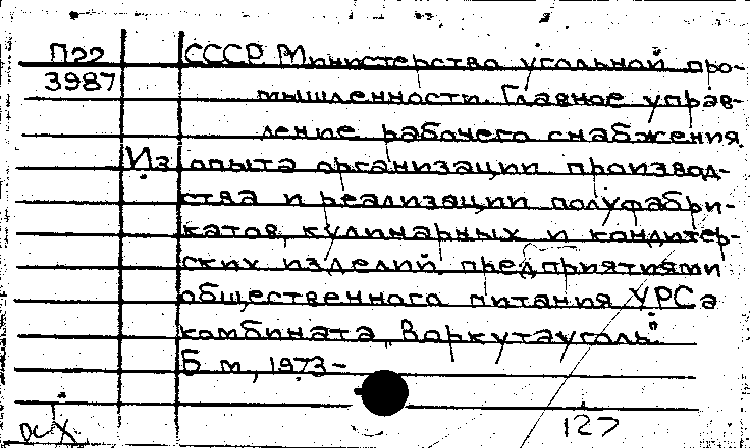 П22 СССР Министерство угольной про-
3987 мышленности. Главное управ-
ление рабочего снабжения.
Из опыта организации производ-
ства и реализации полуфабри-
катов, кулинарных и кондитер-
ских изделий предприятиями
общественного питания УРСа
комбината „Воркутауголь".
Б.м., 1973-
127